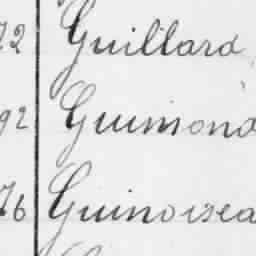 72 Guillard
92 Guimond
76 Guinoisea